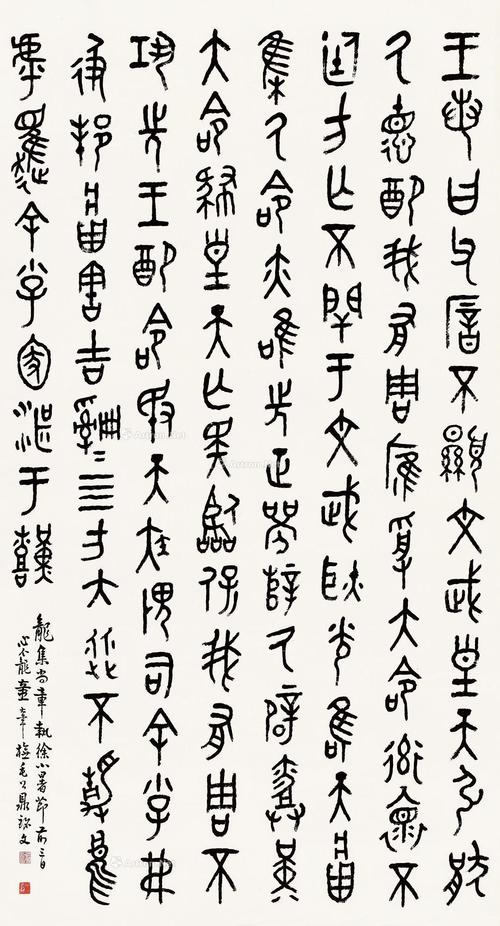 王若曰父厝不顯文武皇天引猒
氒德配我有周膺受大命率懷不
廷方亡不閈于文武耿光唯天甾
集氒命亦唯先正辥氒辟堇
大命肆皇天亡斁臨保我有周不
巩先王配命敃天疾畏司余小子弗
彶邦甾害吉四方大從不靜烏
虖趯余小子圂湛于艱
龍集尚章執徐小暑節前三日
童辛橅毛公鼎銘文